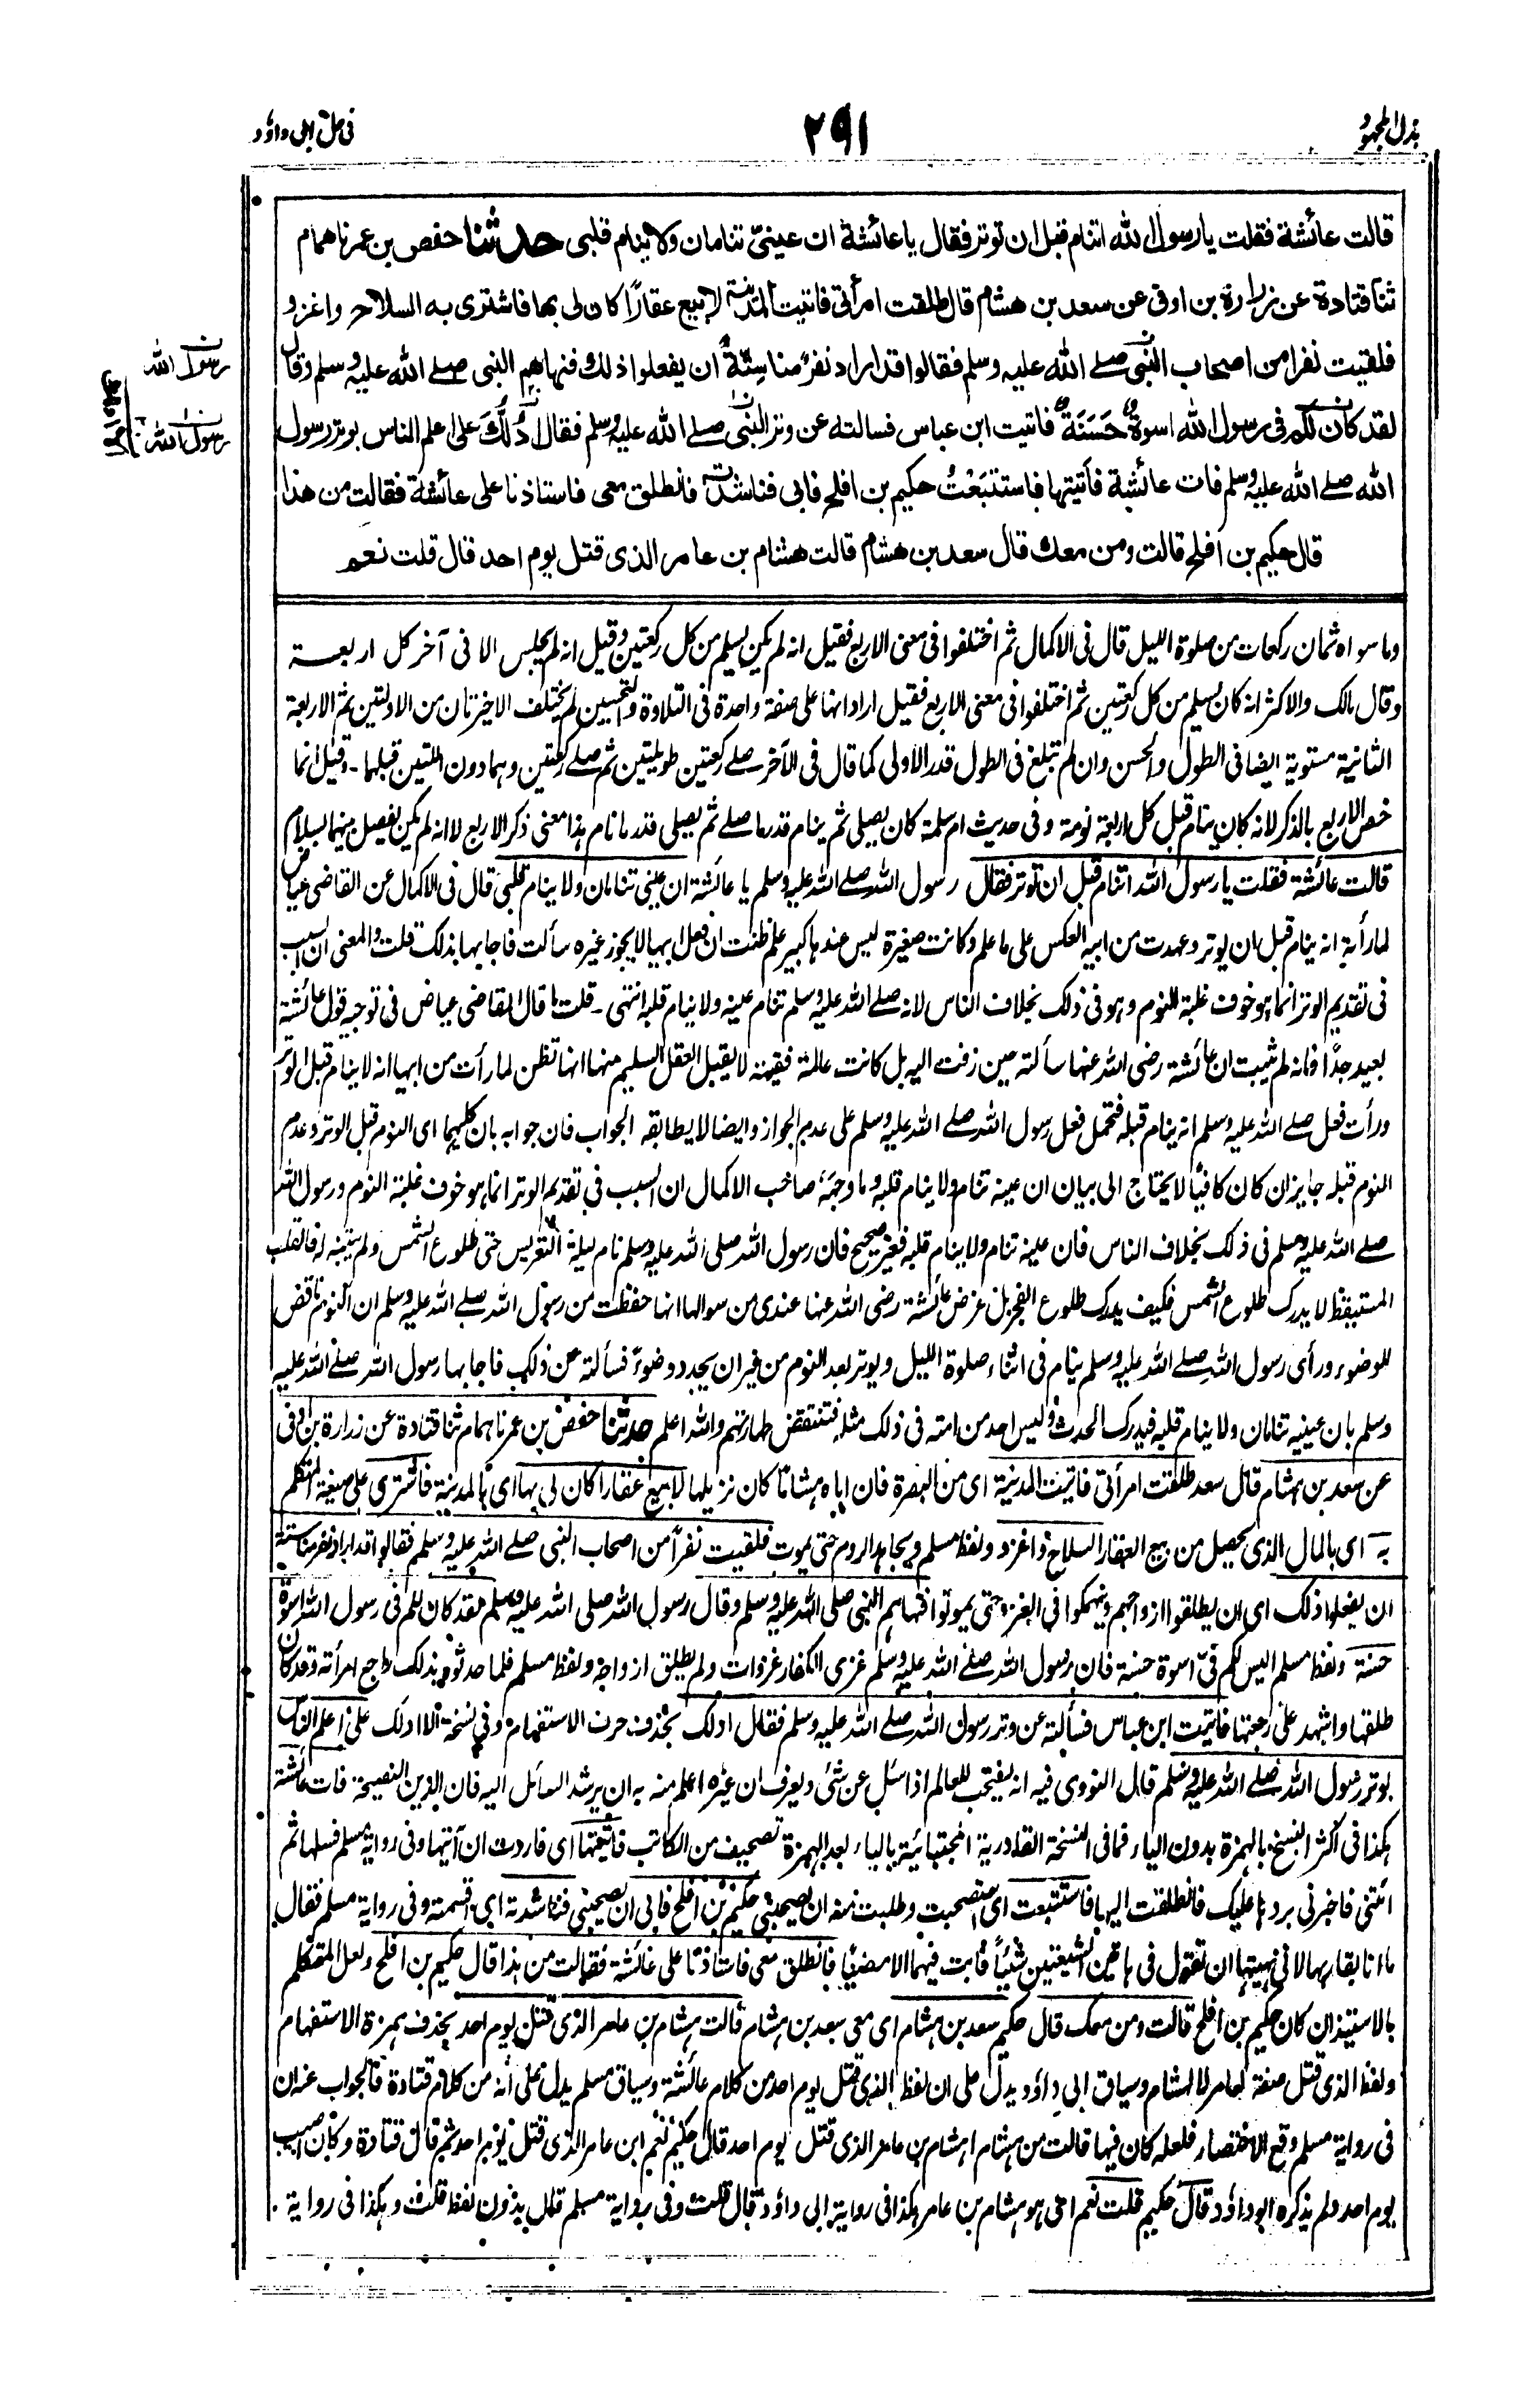 بذل المجهود
٢٩١
فى حل ابى داؤد
قالت عائشة فقلت يا رسول الله اتنام قبل ان توتر فقال يا عائشة ان عينىّ تنامان ولا ينام قلبى حدثنا حفص بن عمر نا همام
ثنا قتادة عن زرارة بن اوفى عن سعد بن هشام قال طلقت امرأتى فاتيت المدينة لابيع عقارًا كان لى بها فاشترى به السلاح واغزو
فلقيت نفرا من اصحاب النبى صلے الله عليه وسلم فقالوا قد اراد نفر منا ستة ان يفعلوا ذلك فنهاهم النبى صلے الله عليه وسلم وقال
لقد كان لكم فى رسول الله اسوة حَسَنَة فاتيت ابن عباس فسالته عن وتر النبى صلے الله عليه وسلم فقال اَدُلُّكَ على اعلم الناس بوتر رسول
الله صلے الله عليه وسلم فات عائشة فأتيتها فاستتبَعْتُ حكيم بن افلح فابى فناشدته فانطلق معى فاستاذنا على عائشة فقالت من هذا
قال حكيم بن افلح قالت ومن معك قال سعد بن هشام قالت هشام بن عامر الذى قتل يوم احد قال قلت نعم
رسول الله
رسول الله
وما سواه ثمان ركعات من صلوة الليل قال فى الاكمال ثم اختلفوا فى معنى الاربع فقيل انه لم يكن يسلم من كل ركعتين وقيل انه لم يجلس الا فى آخر كل اربعة
وقال مالك والاكثر انه كان يسلم من كل ركعتين ثم اختلفوا فى معنى الاربع فقيل اراد انها على صفة واحدة فى التلاوة والتحسين لم يختلف الاخيرتان من الاولتين ثم الاربعة
الثانية مستوية ايضا فى الطول والحسن وان لم تبلغ فى الطول قدر الاولى كما قال فى الآخر صلے ركعتين طويلتين ثم صلے ركعتين وهما دون اللتين قبلهما - وقيل انما
خص الاربع بالذكر لانه كان ينام قبل كل اربعة نومة وفى حديث ام سلمة كان يصلى ثم ينام قدر ما صلے ثم يصلى قدر ما نام هذا معنى ذكر الاربع لا انه لم يكن يفصل بينهما بسلام
قالت عائشة فقلت يا رسول الله اتنام قبل ان توتر فقال رسول الله صلے الله عليه وسلم يا عائشة ان عينى تنامان ولا ينام قلبى قال فى الاكمال عن القاضى عياض
لما رأته انه ينام قبل ان يوتر وعهدت من ابيه العكس على ما علم وكانت صغيرة ليس عندها كبير علم ظنت ان فعل ابيها لا يجوز غيره سألت فاجابها بذلك قلت والمعنى ان السبب
فى تقديم الوتر انما هو خوف غلبة النوم وهو فى ذلك بخلاف الناس لانه صلے الله عليه وسلم تنام عينه ولا ينام قلبه انتهى - قلت ما قال القاضى عياض فى توجيه قول عائشة
بعيد جدًّا فانه لم يثبت ان عائشة رضى الله عنها سألته حين زفت اليه بل كانت عالمة فقيهة لا يقبل العقل السليم منها انها تظن لما رأت من ابيها انه لا ينام قبل الوتر
ورأت فعله صلے الله عليه وسلم انه ينام قبله فتحمل فعل رسول الله صلے الله عليه وسلم على عدم الجواز وايضا لا يطابقه الجواب فان جوابه بان كليهما اى النوم قبل الوتر وعدم
النوم قبله جايزان كان كافيًا لا يحتاج الى بيان ان عينه تنام ولا ينام قلبه وما وجهه صاحب الاكمال ان السبب فى تقديم الوتر انما هو خوف غلبة النوم ورسول الله
صلے الله عليه وسلم فى ذلك بخلاف الناس فان عينه تنام ولا ينام قلبه فغير صحيح فان رسول الله صلى الله عليه وسلم نام ليلة التعريس حتى طلوع الشمس ولم يتنبه له فالقلب
المستيقظ لا يدرك طلوع الشمس فكيف يدرك طلوع الفجر بل غرض عائشة رضى الله عنها عندى من سوالها انها حفظت من رسول الله صلے الله عليه وسلم ان النوم ناقض
للوضوء ورأى رسول الله صلے الله عليه وسلم ينام فى اثناء صلوة الليل ويوتر بعد النوم من غير ان يجدد وضوءً فسألته عن ذلك فاجابها رسول الله صلے الله عليه
وسلم بان عينيه تنامان ولا ينام قلبه فيدرك الحدث وليس احد من امته فى ذلك مثله فتنتقض طهارتهم والله اعلم حدثنا حفص بن عمر نا همام ثنا قتادة عن زرارة بن اوفى
عن سعد بن هشام قال سعد طلقت امرأتى فاتيت المدينة اى من البصرة فان اباه هشاما كان نزيلها لابيع عقارا كان لى بها اى بالمدينة فاشترى على صيغة المتكلم
به اى بالمال الذى يحصل من بيع العقار السلاح واغزو ولفظ مسلم ويجاهد الروم حتى يموت فلقيت نفرًا من اصحاب النبى صلے الله عليه وسلم فقالوا قد اراد نفر منا ستة
ان يفعلوا ذلك اى ان يطلقوا ازواجهم وينهمكوا فى الغزو حتى يموتوا فنهاهم النبى صلى الله عليه وسلم وقال رسول الله صلى الله عليه وسلم لقد كان لكم فى رسول الله اسوة
حسنة ولفظ مسلم اليس لكم فىّ اسوة حسنة فان رسول الله صلے الله عليه وسلم غزى الكفار غزوات ولم يطلق ازواجه ولفظ مسلم فلما حدثوه بذلك راجع امرأته وقد كان
طلقها واشهد على رجعتها فاتيت ابن عباس فسألته عن وتر رسول الله صلے الله عليه وسلم فقال ادلك بحذف حرف الاستفهام وفى نسخة الا ادلك على اعلم الناس
بوتر رسول الله صلے الله عليه وسلم قال النووى فيه انه يستحب للعالم اذا سئل عن شئ ويعرف ان غيره اعلم منه به ان يرشد السائل اليه فان الدين النصيحة فات عائشة
هكذا فى اكثر النسخ بالهمزة بدون الياء فما فى النسخة القادرية المجتبائية بالياء بعد الهمزة تصحيف من الكاتب فاتيتها اى فاردت ان آتيها وفى رواية مسلم فسلها ثم
ائتنى فاخبرنى بردها عليك فانطلقت اليها فاستتبعت اى استصحبت وطلبت منه ان يصحبنى حكيم بن افلح فابى ان يصحبنى فناشدته اى قسمته وفى رواية مسلم فقال
ما انا بقاربها لانى نهيتها ان تقول فى هاتين الشيعتين شيئاً فابت فيهما الا مضيًا فانطلق معى فاستاذنا على عائشة فقالت من هذا قال حكيم بن افلح ولعل المتكلم
بالاستيذان كان حكيم بن افلح قالت ومن معك قال حكيم سعد بن هشام اى معى سعد بن هشام قالت هشام بن عامر الذى قتل يوم احد بحذف همزة الاستفهام
ولفظ الذى قتل صفة لعامر لا لهشام وسياق ابى داؤد يدل على ان لفظ الذى قتل يوم احد من كلام عائشة وسياق مسلم يدل على أنه من كلام قتادة فالجواب عنه ان
فى رواية مسلم وقع الاختصار فلعله كان فيها قالت من هشام اهشام بن عامر الذى قتل يوم احد قال حكيم نعم ابن عامر الذى قتل يوم احد ثم قال قتادة وكان اصيب
يوم احد ولم يذكره ابو داؤد قال حكيم قلت نعم اى هو هشام بن عامر هكذا فى رواية ابى داؤد قال قلت وفى رواية مسلم قال بدون لفظ قلت وهكذا فى رواية